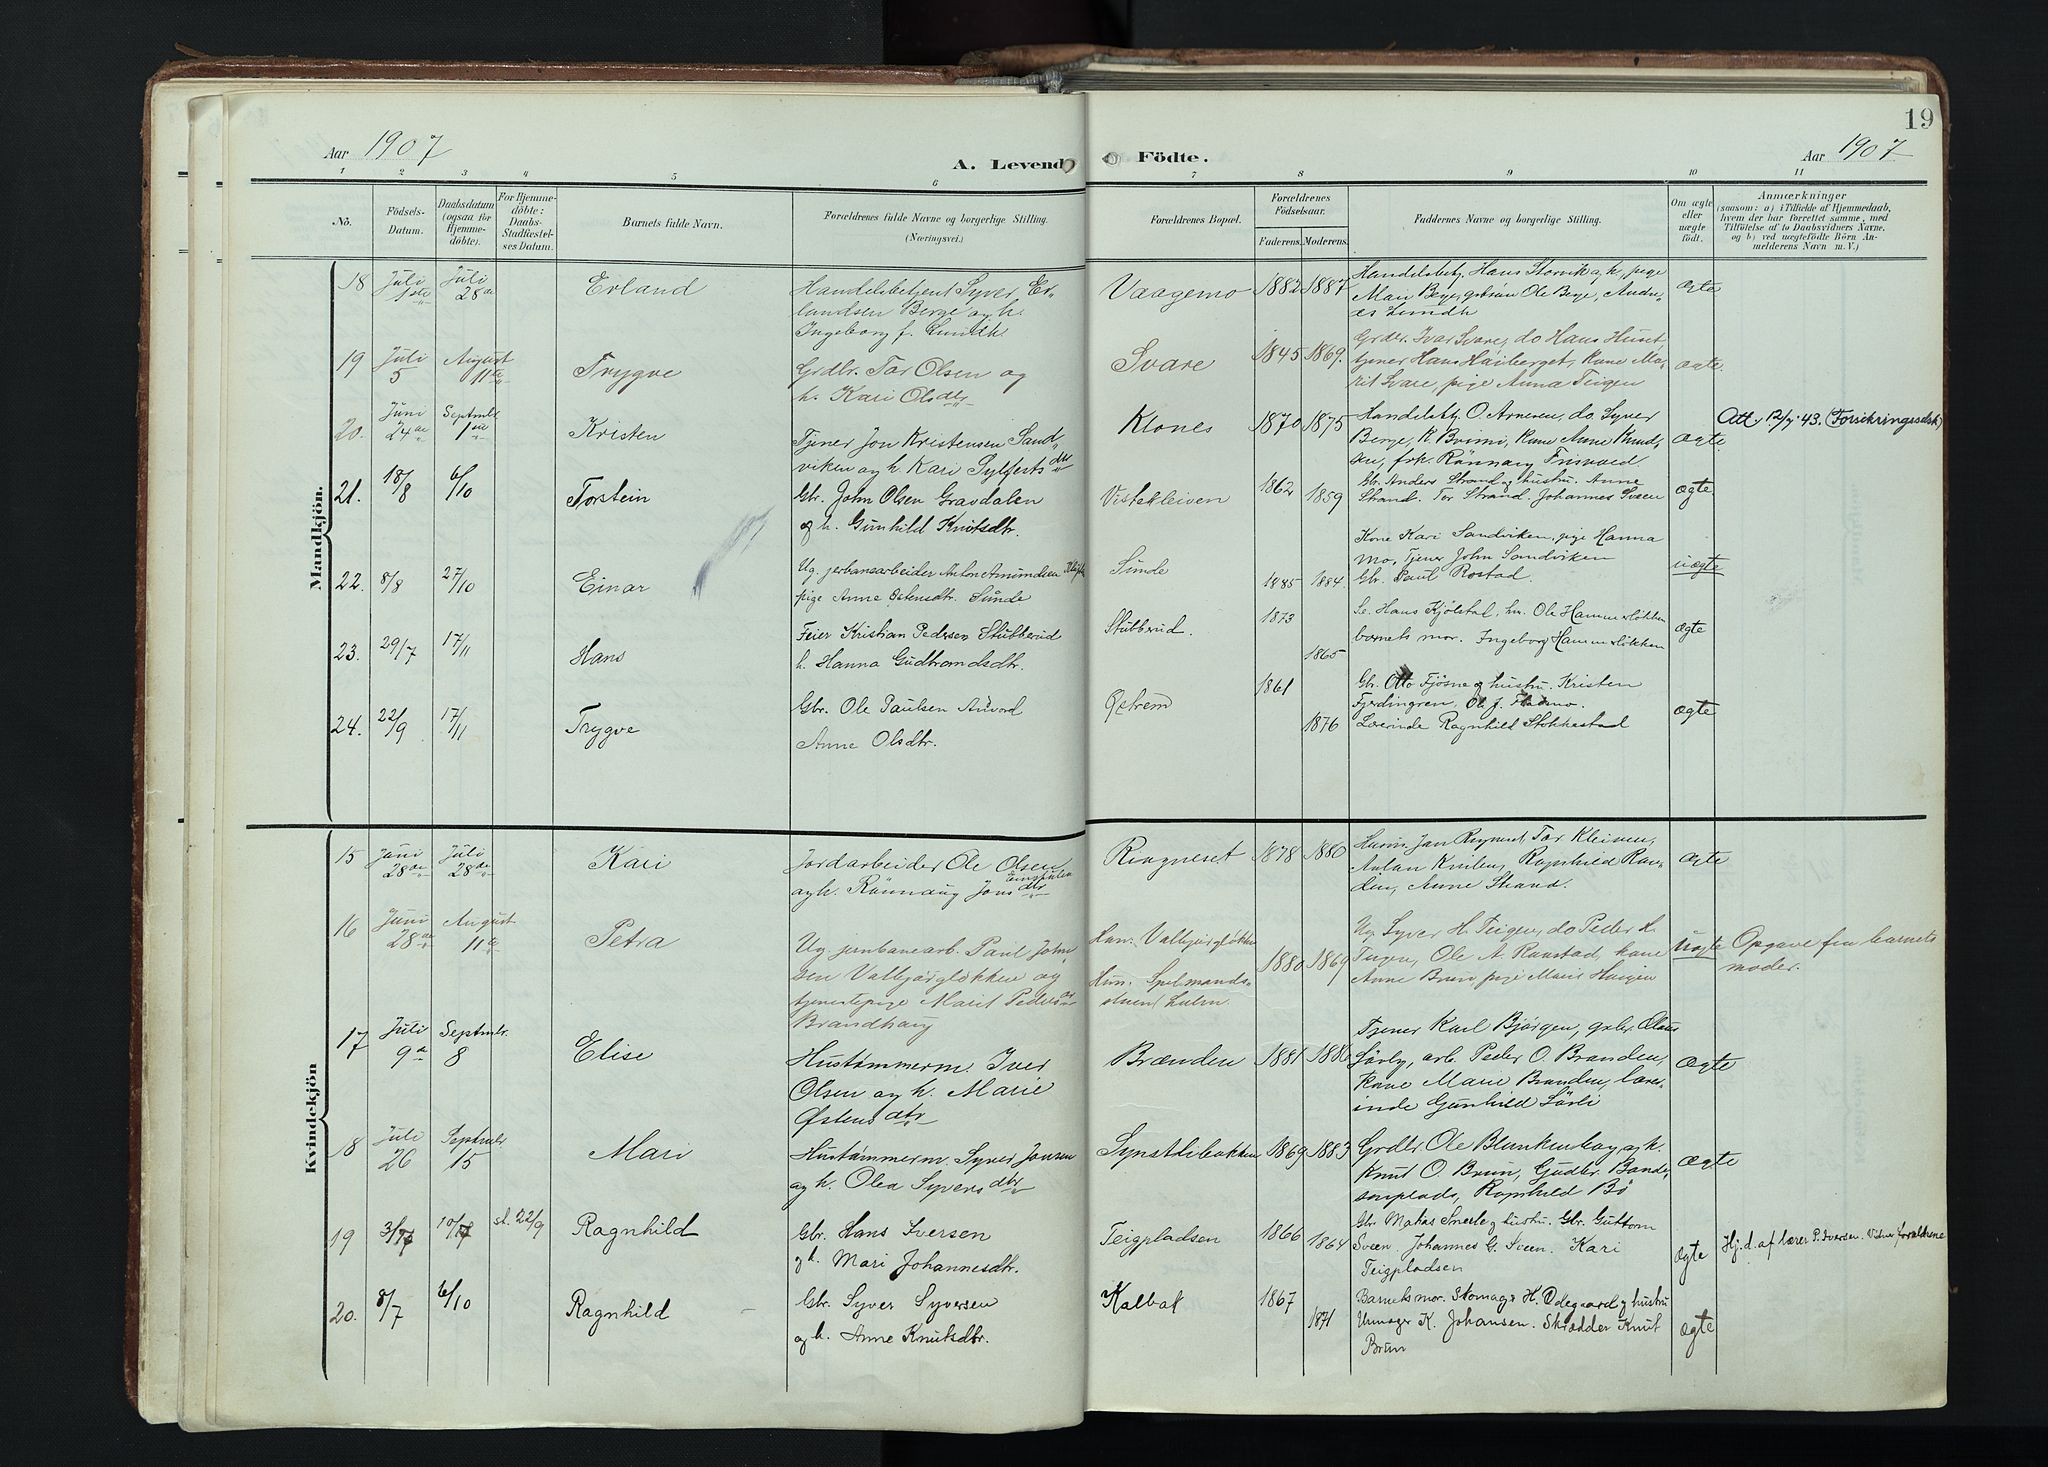 19
Aar 1907
A. Levende Födte.
Aar 1907
1 2 3 4 5 6 7 8 9 10 11
No.
Födsels-
Datum.
Daabsdatum
(ogsaa for
Hjemme-
döbte).
For Hjemme-
döbte:
Daabs-
Stadfæstel-
ses Datum.
Barnets fulde Navn.
Forældrenes fulde Navne og borgerlige Stilling.
(Næringsvei.)
Forældrenes Bopæl.
Forældrenes
Födselsaar.
Faderens. Moderens.
Faddernes Navne og borgerlige Stilling.
Om ægte
eller
uægte
født.
Anmærkninger
(saasom: a) i Tilfælde af Hjemmedaab,
hvem der har forrettet samme, med
Tilföielse af to Daabsvidners Navne,
og b) ved uægtefödte Börn An-
melderens Navn m. V.)
Mandkjön.
18 Juli 1ste Juli 28de Erland
Handelsbetjent Syver Er-
landsen Berge og h.
Ingeborg f. Lundh.
Vaagemo 1882 1887
Handelsbetj. Hans Storvik og h., pige
Mari Berge, gebrsøn Ole Berge, Andre-
as Lundh
ægte
19 Juli 5 August 11te Trygve
Grdbr. Tor Olsen og
h. Kari Olsdtr
Svare 1845 1869.
Grdbr. Ivar Svare, do Hans Huset,
tjener Hans Haiberget, kone Ma-
rit Svare, pige Anna Teigen
ægte.
20. Juni 24de Septmbr 1ste Kristen
Tjener Jon Kristensen Sand-
viken og h. Kari Sylfestsdtr
Klones 1870 1875
Handelsbtj. O. Arnesen, do. Syver
Berge, K. Brimi, kone Anne Knud-
sen, frk. Rönnaug Frisvold.
ægte
Att 12/7 43. (Forsikringsselsk)
21. 18/8 6/10 Torstein
Gbr. John Olsen Gravdalen
og h. Gunhild Knutsdtr.
Vistekleiven 1862 1859
Gbr Anders Strand og hustru. Anne
Strand. Tor Strand. Johannes Sveen
ægte
22. 8/8 27/10 Einar
Ug. jerbanearbeider Anton Amundsen
pige Anne Østensdtr. Sunde
Sunde 1885 1884
Kone Kari Sandviken, pige Hanna
Mo, Tjener John Sandviken
Gbr. Paul Rostad.
uægte
23. 29/7 17/11 Hans
Feier Kristian Pedersen Stubberud
h. Hanna Gudbrandsdtr.
Stubberud. 1873 1865
Se. Hans Kjølstad, hu. Ole Hammerløkken
barnets mor. Ingeborg Hammerløkken
ægte
24. 22/9 17/11 Trygve
Gbr. Ole Paulsen
Anne Olsdtr.
Østrem 1861 1876
Gbr. Otto Fjösne og hustru. Kristen
Fjerdingren, Ole J.
Lærerinde Ragnhild Stokkestad
ægte
Kvindekjön
15 Juni 28de Juli 28de Kari
Jordarbeider Ole Olsen
og h. Rönnaug Jonsdtr
Ringneset 1878 1880
Husm. Jan Ringnest, Tor Kleiven,
Anton Kvilen, Ragnhild
Anne Strand.
ægte
16 Juni 28de August 11te Petra
Ug. jernbanearb. Paul John-
sen Valbjørgløkken og
tjenestepige Marit Peders-
Brandhaug
Han: Valbjørgløkken
Hun: Spelmands-
1880 1869
Ug. Syver H. Teigen, do Peder K.
Teigen, Ole A. Ranstad, kone
Anne Brun, pige Marie Haugen
Uægte
Opgave fra barnets
moder.
17 Juli 9de Septmbr. 8 Elise
Hustømmerm. Iver
Olsen og h. Marie
Østensdtr
Brænden 1881 1886
Tjener Karl Bjørgen, gebr. Olaus
Sörly, arb. Peder O. Branden,
Kone Marie Branden, lærer-
inde Gunhild Sörli
Ægte
18 Juli 26 Septmbr 15 Mari
Hustømmerm. Syver Jonsen
og h. Olea Syversdtr
Synstlibakken 1869 1883
Grdbr Ole Blunkenhaug og h.
Knut O. Brun, Gudbr. Bande-
Ragnhild Bö
Ægte
19 10/ st. 22/9 Ragnhild
Gbr. Hans Iversen
og h. Mari Johannesdtr.
Teigpladsen 1866 1864
Gbr Matias Snerle og hustru. Gbr. Guttorm
Sveen. Johannes G. Sveen. Kari
Teigpladsen
Ægte
Hj. d. af lærer P. Iversen. Vidner forældrene
20. 8/7 6/10 Ragnhild
Gbr. Syver Syversen
og h. Anne Knutsdtr.
Kalbak 1867 1871
Barnets mor. Skomager H. Ødegaard og hustru
Urmager K. Johansen. Skrædder Knut
Brun
Ægte